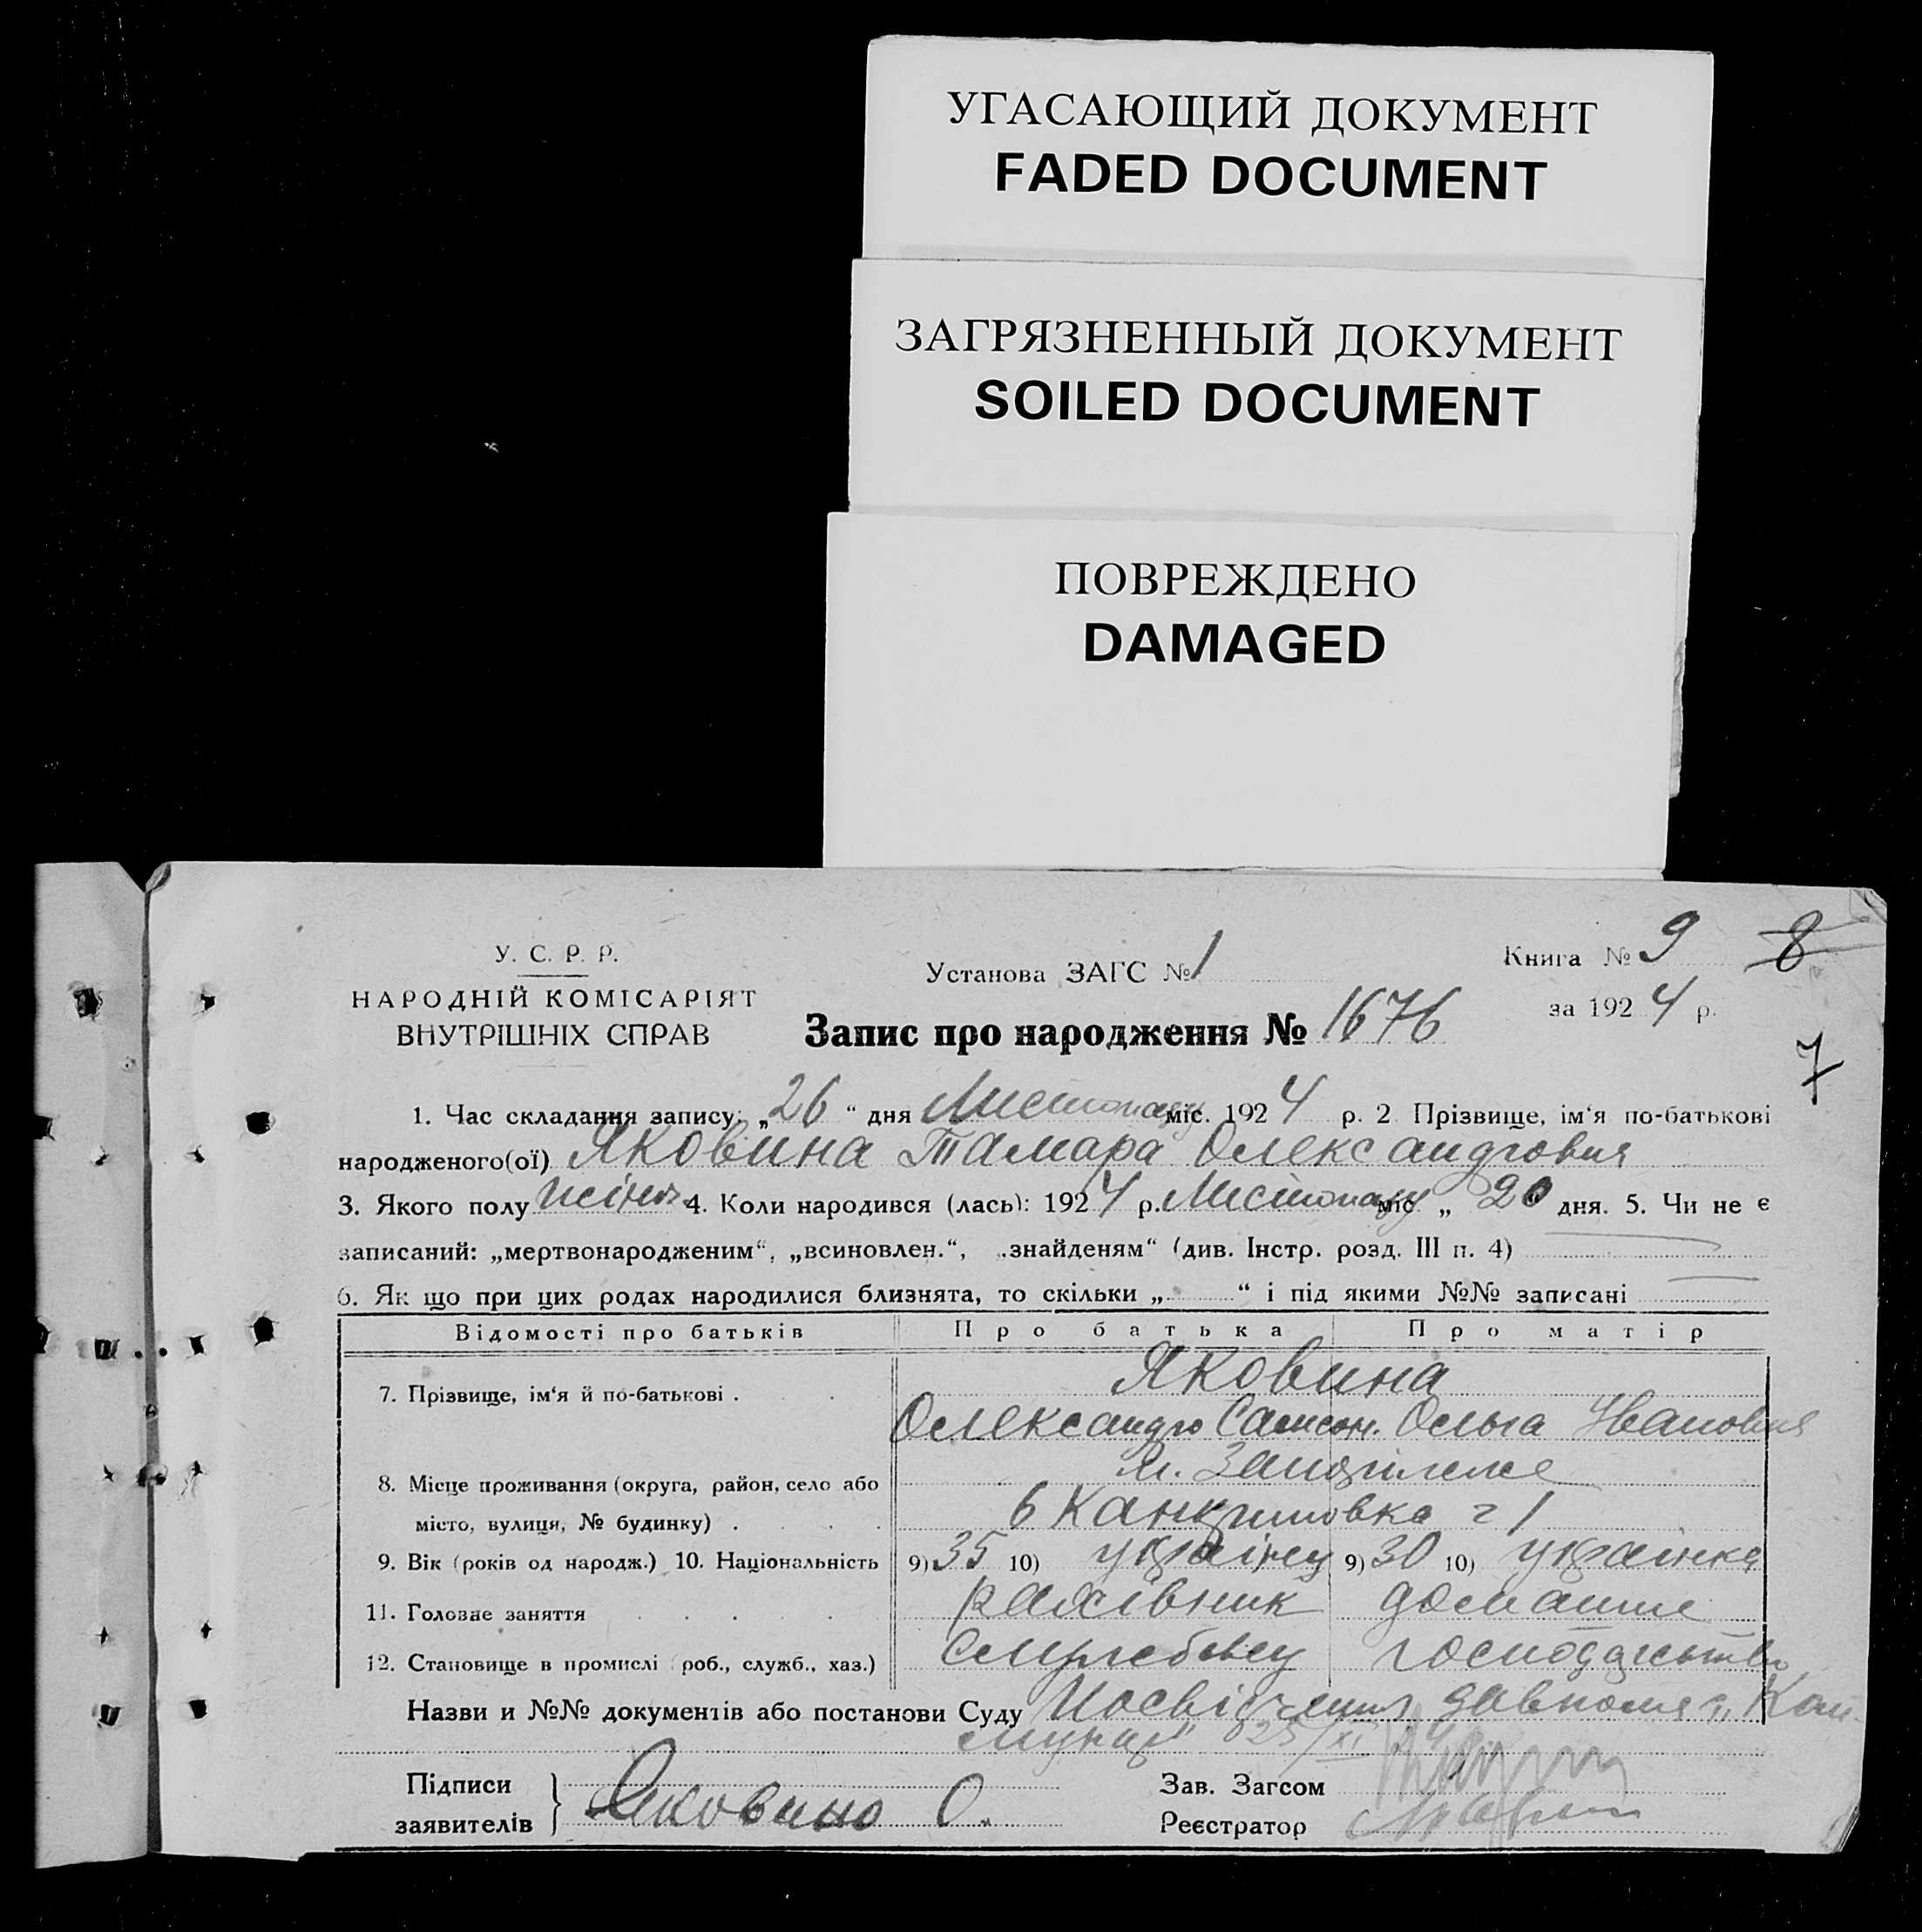 УГАСАЮЩИЙ ДОКУМЕНТ
FADED DOCUMENT
ЗАГРЯЗНЕННЫЙ ДОКУМЕНТ
SOILED DOCUMENT
ПОВРЕЖДЕНО
DAMAGED
У. С. Р. Р.
НАРОДНІЙ КОМІСАРІЯТ
ВНУТРІШНІХ СПРАВ
Установа ЗАГС № 1
Книга № 9 8
за 1924 р.
Запис про народження № 1676
7
1. Час складання запису: „26“ дня Листопаду міс. 1924 р. 2 Прізвище, ім‘я по-батькові
народженого(ої) Яковина Тамара Олександровна
3. Якого полу жіноч. 4. Коли народився (лась): 1924 р. Листопаду міс „ 20 дня. 5. Чи не є
записаний: „мертвонародженим“, „всиновлен.“, „знайденям“ (див. Інстр. розд. III п. 4)
6. Як що при цих родах народилися близнята, то скільки „ “ і під якими №№ записані
Відомості про батьків Про батька Про матір
7. Прізвище, ім‘я й по-батькові . Яковина
Олександр Самсон. Ольга Івановна
8. Місце проживання (округа, район, село або м. Запоріжже
місто, вулиця, № будинку) . 6
9. Вік (років од народж.) 10. Національність 9) 35 10) українец 9) 30 10) українка
11. Головне заняття рахівник домашне
12. Становище в промислі (роб., служб., хаз.) служебовец господарство
Назви и №№ документів або постанови Суду Посвідчення завкома „Ком-
мунар“ 25/XI
Підписи
заявителів } Яковино О.
Зав. Загсом
Реєстратор